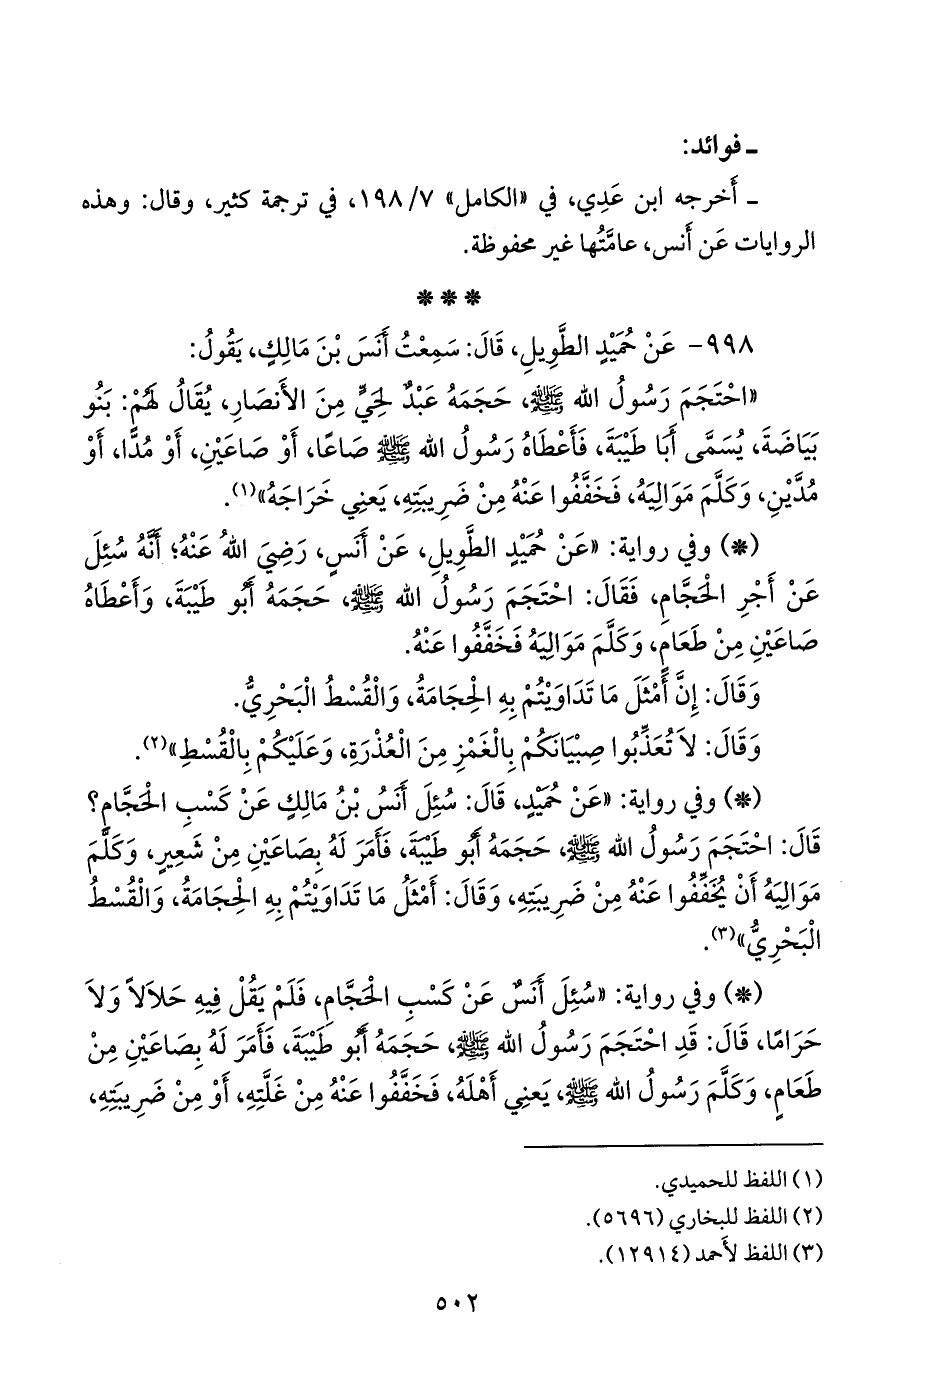 ـ فوائد:
ـ أَخرجه ابن عَدِي، في «الكامل» ٧/ ١٩٨، في ترجمة كثير، وقال: وهذه
الروايات عَن أَنس، عامَّتُها غير محفوظة.
***
٩٩٨- عَنْ حُمَيْدٍ الطَّوِيلِ، قَالَ: سَمِعْتُ أَنَسَ بْنَ مَالِكٍ، يَقُولُ:
«احْتَجَمَ رَسُولُ الله ﷺ، حَجَمَهُ عَبْدٌ لِحَيٍّ مِنَ الأَنصَارِ، يُقَالُ لَهُمْ: بَنُو
بَيَاضَةَ، يُسَمَّى أَبَا طَيْبَةَ، فَأَعْطَاهُ رَسُولُ الله ﷺ صَاعًا، أَوْ صَاعَيْنِ، أَوْ مُدًّا، أَوْ
مُدَّيْنِ، وَكَلَّمَ مَوَالِيَهُ، فَخَفَّفُوا عَنْهُ مِنْ ضَرِيبَتِهِ، يَعنِي خَرَاجَهُ»(١).
(*) وفي رواية: «عَنْ حُمَيْدٍ الطَّوِيلِ، عَنْ أَنَسٍ، رَضِيَ اللهُ عَنْهُ؛ أَنَّهُ سُئِلَ
عَنْ أَجْرِ الْحَجَّامِ، فَقَالَ: احْتَجَمَ رَسُولُ الله ﷺ، حَجَمَهُ أَبُو طَيْبَةَ، وَأَعْطَاهُ
صَاعَيْنِ مِنْ طَعَامٍ، وَكَلَّمَ مَوَالِيَهُ فَخَفَّفُوا عَنْهُ.
وَقَالَ: إِنَّ أَمْثَلَ مَا تَدَاوَيْتُمْ بِهِ الْحِجَامَةُ، وَالْقُسْطُ الْبَحْرِيُّ.
وَقَالَ: لاَ تُعَذِّبُوا صِبْيَانَكُمْ بِالْغَمْزِ مِنَ الْعُذْرَةِ، وَعَلَيْكُمْ بِالْقُسْطِ»(٢).
(*) وفي رواية: «عَنْ حُمَيْدٍ، قَالَ: سُئِلَ أَنَسُ بْنُ مَالِكٍ عَنْ كَسْبِ الْحَجَّامِ؟
قَالَ: احْتَجَمَ رَسُولُ الله ﷺ، حَجَمَهُ أَبُو طَيْبَةَ، فَأَمَرَ لَهُ بِصَاعَيْنِ مِنْ شَعِيرٍ، وَكَلَّمَ
مَوَالِيَهُ أَنْ يُخَفِّفُوا عَنْهُ مِنْ ضَرِيبَتِهِ، وَقَالَ: أَمْثَلُ مَا تَدَاوَيْتُمْ بِهِ الْحِجَامَةُ، وَالْقُسْطُ
الْبَحْرِيُّ»(٣).
(*) وفي رواية: «سُئِلَ أَنَسٌ عَنْ كَسْبِ الْحَجَّامِ، فَلَمْ يَقُلْ فِيهِ حَلاَلاً وَلاَ
حَرَامًا، قَالَ: قَدِ احْتَجَمَ رَسُولُ الله ﷺ، حَجَمَهُ أَبُو طَيْبَةَ، فَأَمَرَ لَهُ بِصَاعَيْنِ مِنْ
طَعَامٍ، وَكَلَّمَ رَسُولُ الله ﷺ، يَعنِي أَهْلَهُ، فَخَفَّفُوا عَنْهُ مِنْ غَلَّتِهِ، أَوْ مِنْ ضَرِيبَتِهِ،
(١) اللفظ للحميدي.
(٢) اللفظ للبخاري (٥٦٩٦).
(٣) اللفظ لأَحمد (١٢٩١٤).
٥٠٢